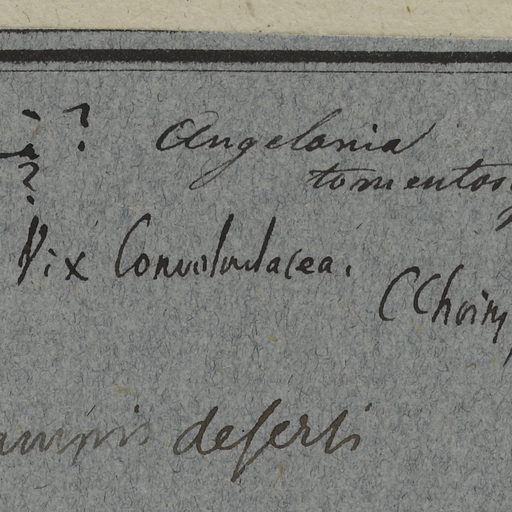 à ? Angelonia
? tomentosa
Vix Convolvulacea.
(Choisy
campis deserti